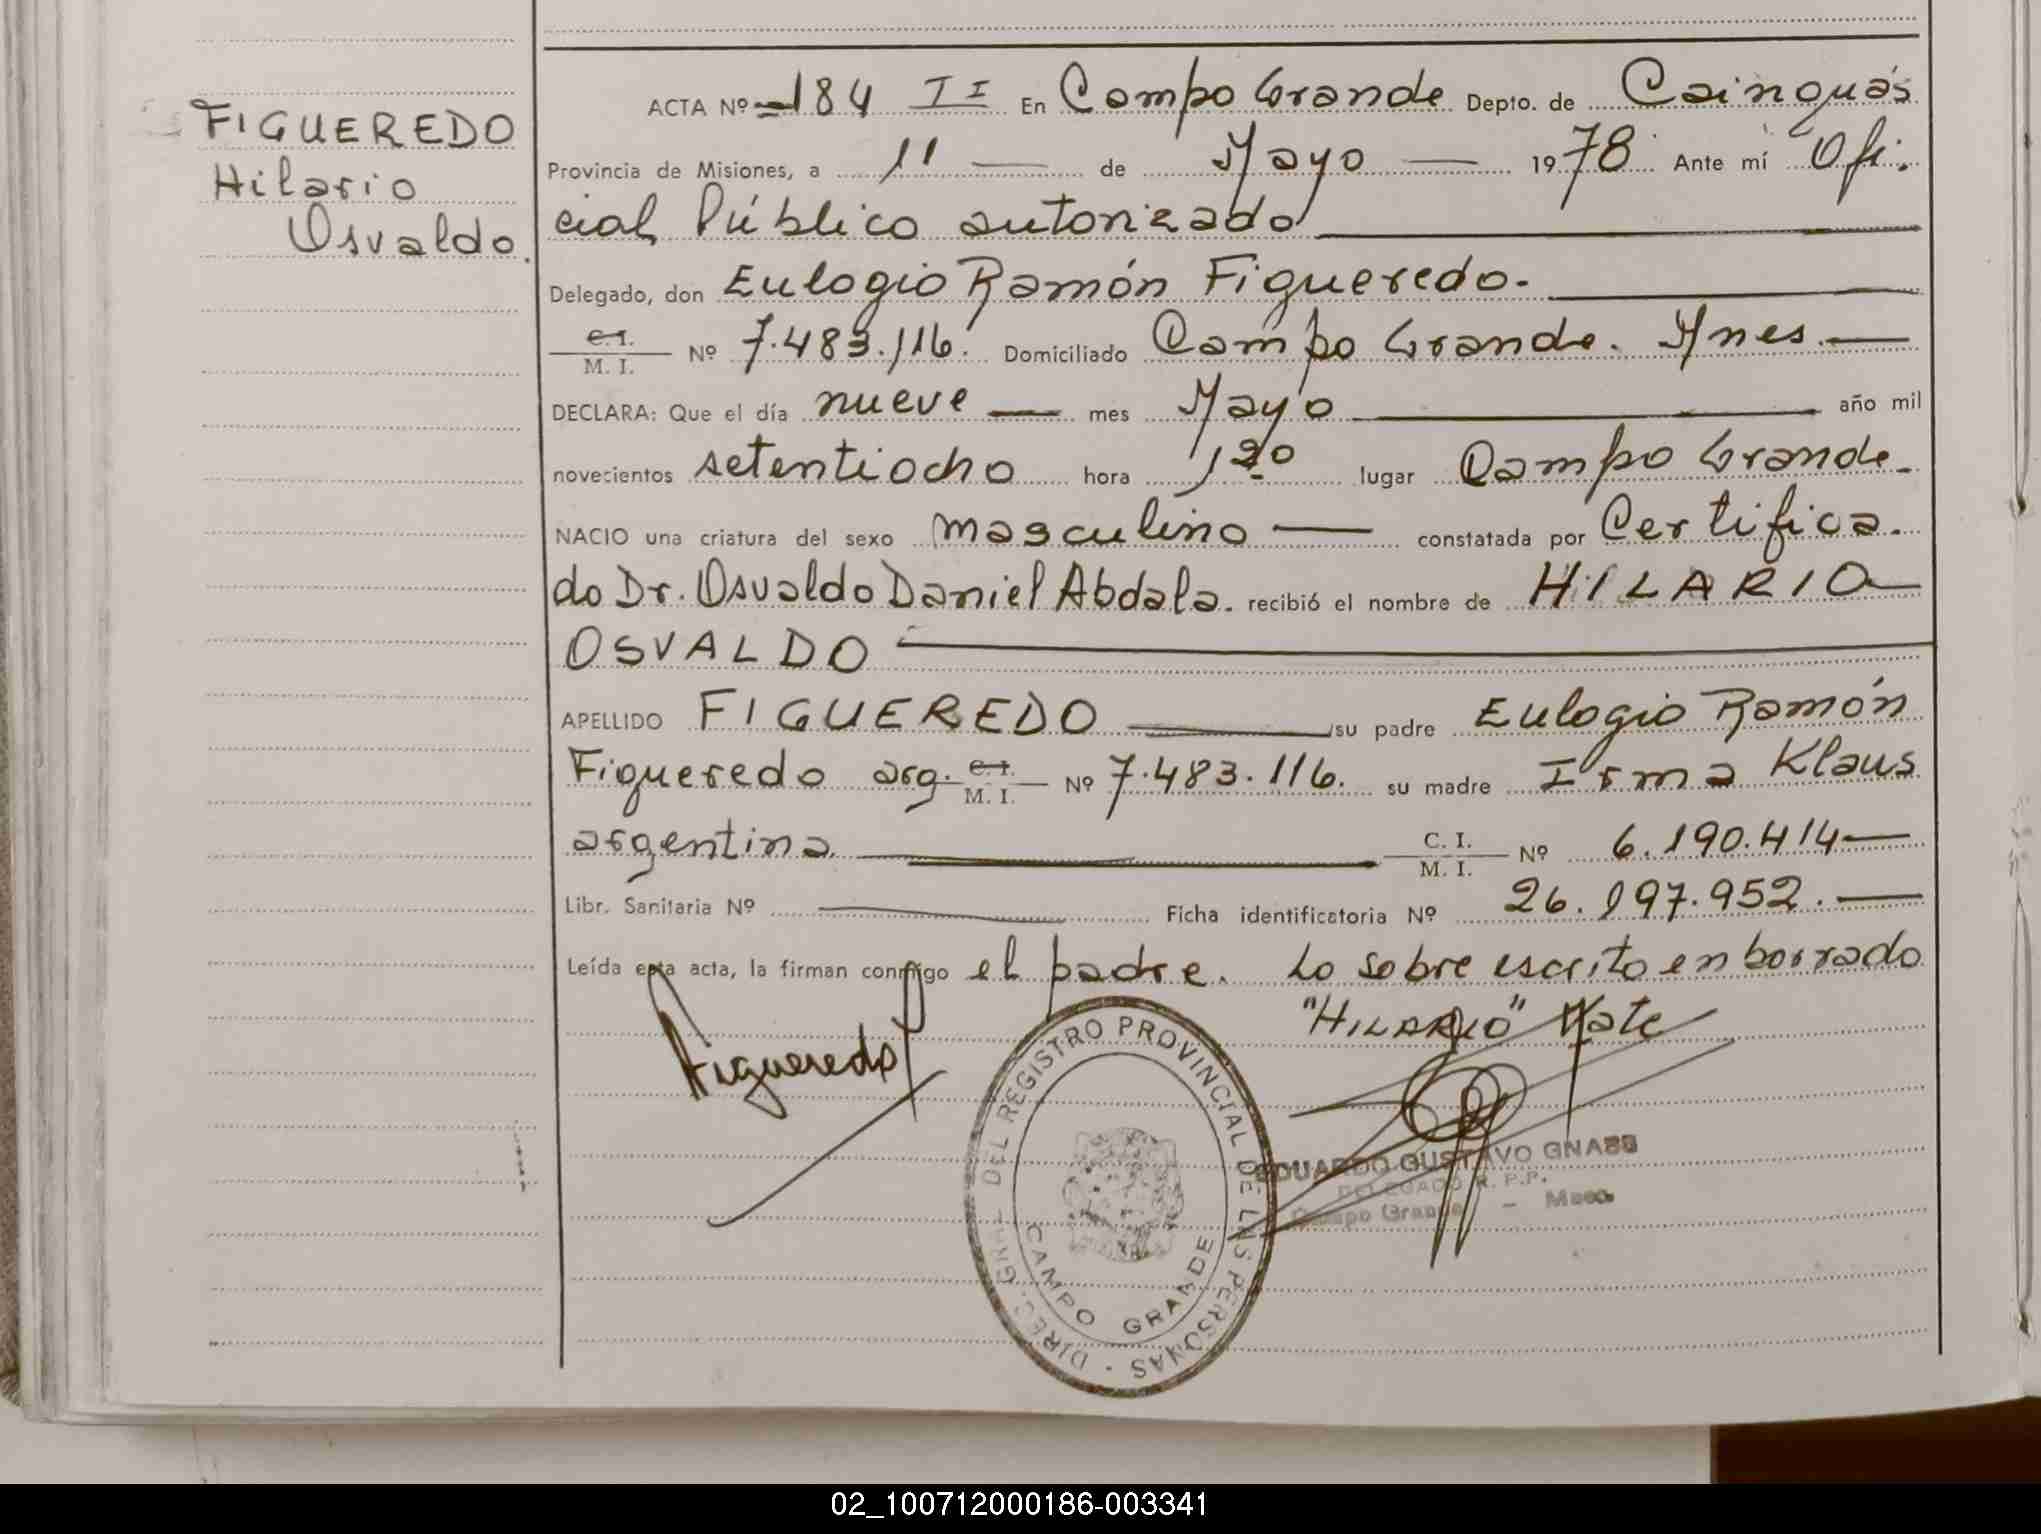 FIGUEREDO
Hilario
Osvaldo.
ACTA Nº 184 II En Campo Grande Depto. de Cainguás
Provincia de Misiones, a 11 de Mayo 1978. Ante mí Ofi.
cial Público autorizado
Delegado, don Eulogio Ramón Figueredo.
C. I. / M. I. Nº 7.483.116. Domiciliado Campo Grande. Mnes.
DECLARA: Que el día nueve mes Mayo año mil
novecientos setentiocho hora 1 20 lugar Campo Grande.
NACIO una criatura del sexo masculino constatada por Certifica.
do Dr. Osvaldo Daniel Abdala. recibió el nombre de HILARIO
OSVALDO
APELLIDO FIGUEREDO su padre Eulogio Ramón
Figueredo arg. C. I. / M. I. Nº 7.483.116. su madre Irma Klaus
argentina C. I. / M. I. Nº 6.190.414
Libr. Sanitaria Nº Ficha identificatoria Nº 26.197.952.
Leída esta acta, la firman conmigo el padre. Lo sobre escrito en borrado
"HILARIO" Vate
Figueredo
DIREC. GRAL. DEL REGISTRO PROVINCIAL DE LAS PERSONAS
CAMPO GRANDE
EDUARDO GUSTAVO GNASS
DELEGADO R. P.P.
Campo Grande - Mnes.
02_100712000186-003341